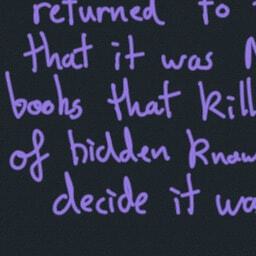 returned to
that it was
books that kill
of hidden know
decide it wa